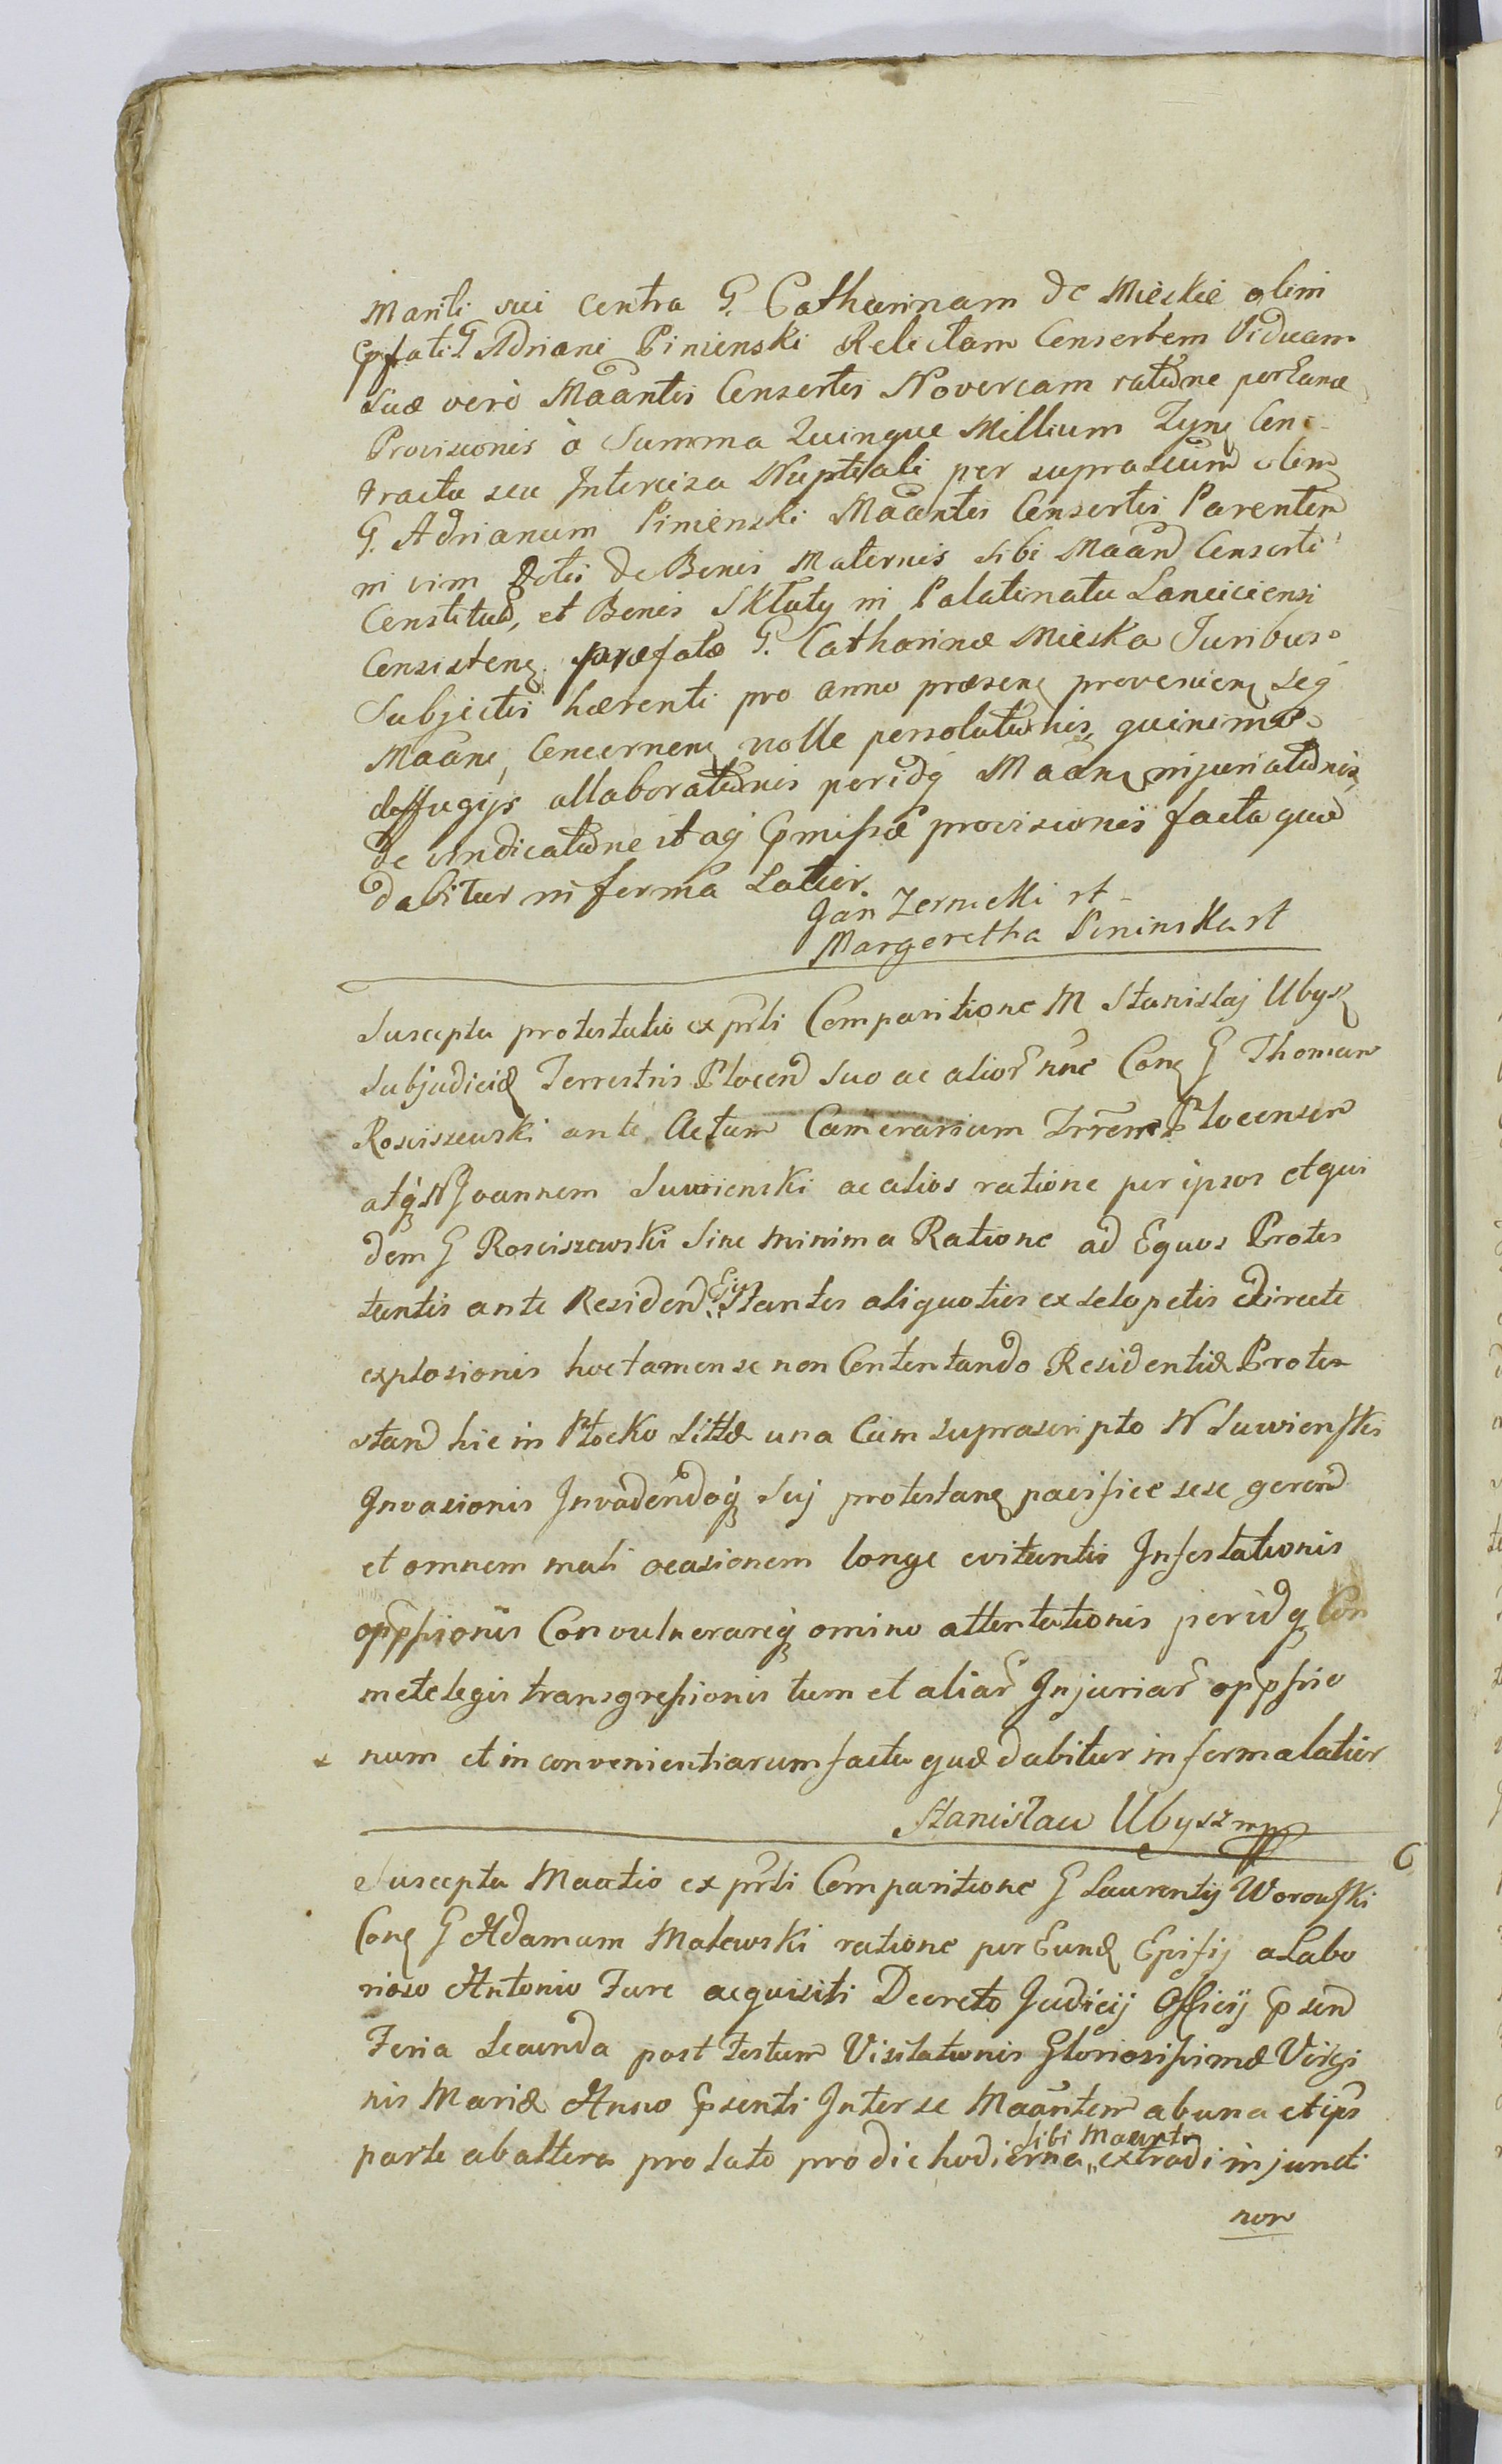 Mariti sui contra G. Catharinam de Mieskie olim
pfati G Adriani Pinienski Relictam Consortem Viduam
suæ verò Maãntis Consortis Novercam ratiõne per Eanđ
Provisionis à Summa Quinque Millium Tynf Con-
tractu seu Intercisa Nuptiali per suprascium olim
G. Adrianum Pinienski Maãntis Consortis Parentem
in vim Dotis de Bonis Maternis sibi Maand Consorti
Constitud, et Bonis Skłoty in Palatinatu Lanciciensi
Consisten præfatæ G. Catharinæ Mieska Juribus
Subjectis hærenti pro anno præsen provenien seq
Maãn, Concernen nolle persolutiõnis, quinimo
deffugijs allaboratiõnis peridq Maãn injuriatiõnis,
de vindicatiõne itaq pmissæ provisionis facta quæ
dabitur in forma Latior.
Jan Zernicki rt
Margeretha Pininska rt
Suscepta protestatio ex prti Comparitione M Stanislaj Ubysz
Subjudicis Terrestris Plocen suo ac alior nne Con G Thomam
Rosciszewski ante Actum Camerarium Trrem Plocensem
atq N Joannem Suwienski ac alios ratione per ipsos et qui
dem G Rosciszewski Sine minima Ratione ad Equos Protes
tantis ante Residen Ejus stantes aliquoties ex sclopetis directe
explosionis hoc tamen se non Contentando Residentiæ Protes
stan hic in Płocko sittæ una Cum suprascripto N Suwienski
Invasionis Invadendoq Sui protestan pacifice sese geren
et omnem mali ocasionem longe evitantis Infestationis
oppssionis Convulnerareq omino attentationis peridq Con
mete legis transgressionis tum et aliar Injuriar oppssio
num et in convenientiarum facta quæ dabitur in forma latior
Stanisław Ubysz mpp
6
Suscepta Maatio ex prti Comparitione G Laurentij Worowski
Con G Adamum Malewski ratione per Eund Episij a Labo
rioso Antonio Fure acquisiti Decreto Judicij Officij psen
Feria Secunda post Festum Visitationis Gloriosissimæ Virgi
nis Mariæ Anno psenti Inter se Maãntem ab una et ips
parte ab altera pro lato pro die hodierna sibi Maanti extradi injuncti
non